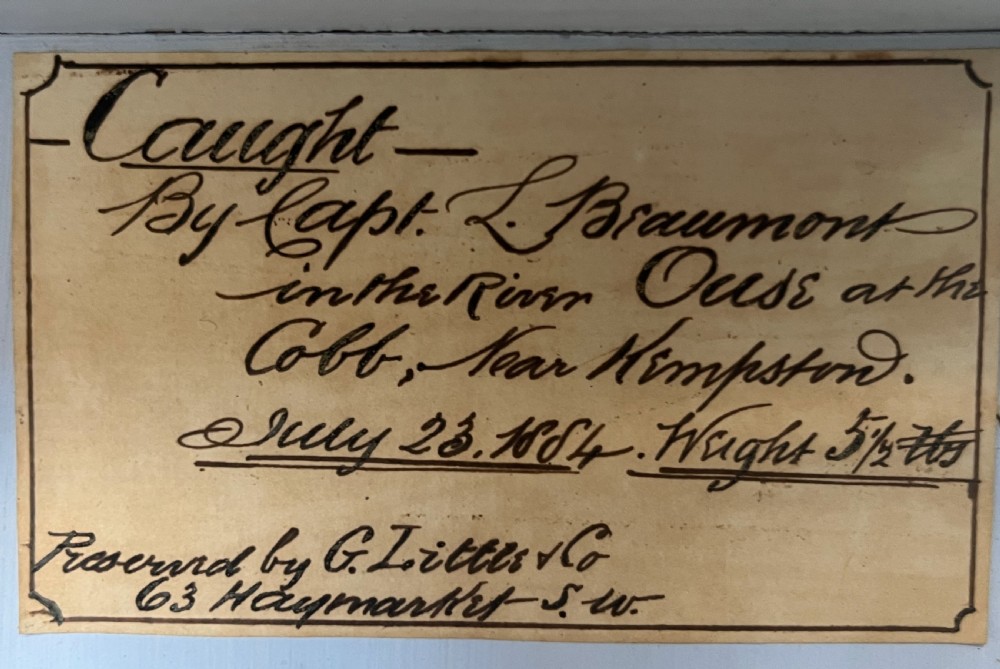 — Caught —
By Capt. L. Beaumont
in the River Ouse at the
Cobb, Near Kempston.
July 23. 1884. Weight 5 1/2 lbs
Preserved by G. Little & Co
63 Haymarket S. W.